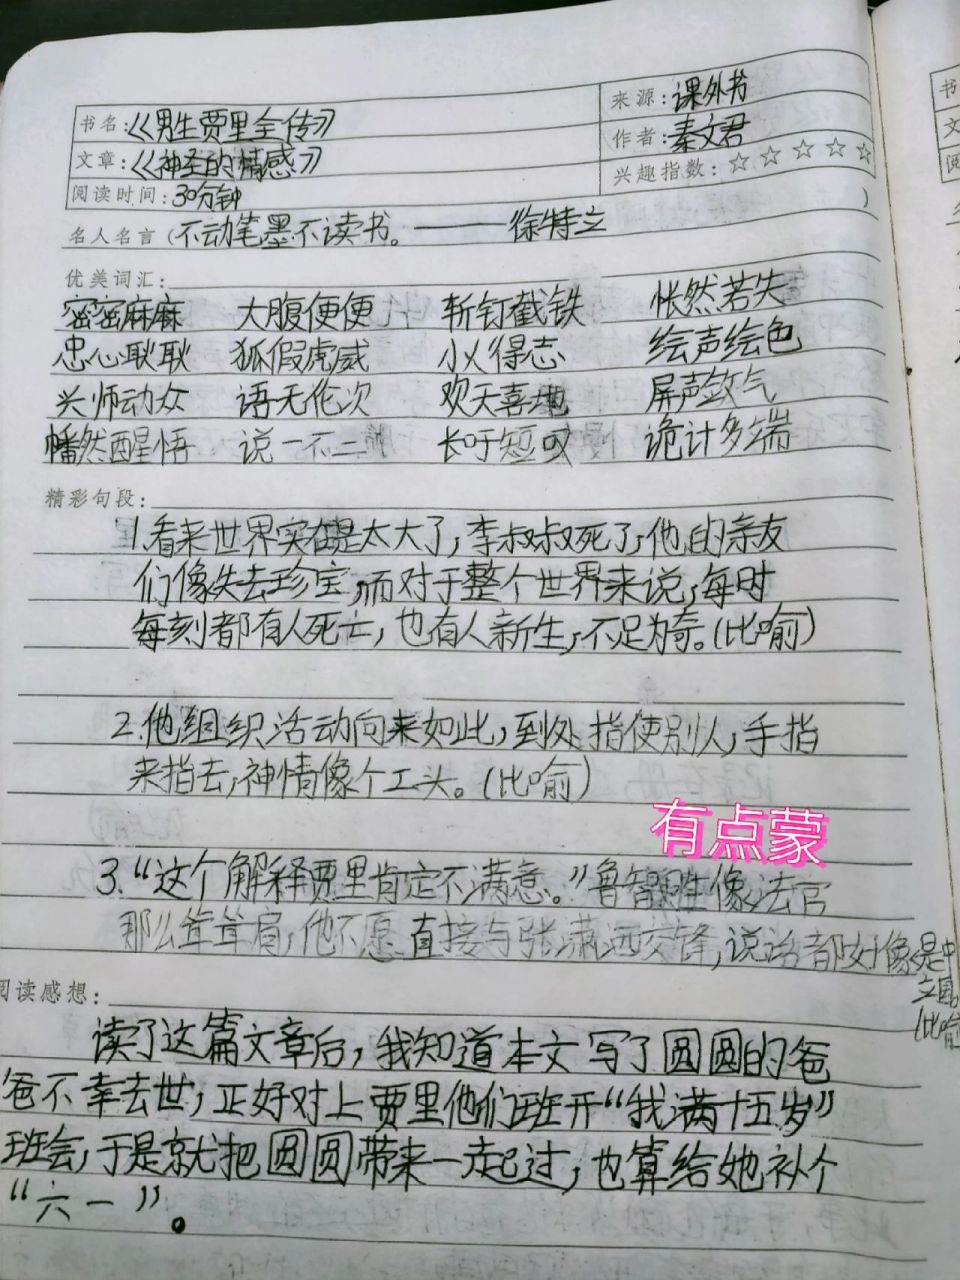 书名:《男生贾里全传》
来源:课外书
文章:《神圣的情感》
作者:秦文君
阅读时间:30分钟
兴趣指数:☆☆☆☆☆
名人名言(不动笔墨不读书。——徐特立)
优美词汇:
密密麻麻 大腹便便 斩钉截铁 怅然若失
忠心耿耿 狐假虎威 小人得志 绘声绘色
兴师动众 语无伦次 欢天喜地 屏声敛气
幡然醒悟 说一不二 长吁短叹 诡计多端
精彩句段:
1.看来世界实在是太大了,李叔叔死了,他的亲友
们像失去珍宝,而对于整个世界来说,每时
每刻都有人死亡,也有人新生,不足为奇。(比喻)
2.他组织活动向来如此,到处指使别人,手指
来指去,神情像个工头。(比喻)
有点蒙
3.“这个解释贾里肯定不满意。”鲁智胜像法官
那么耸耸眉,他不愿直接与张潇洒交锋,说话都好像是中
立国。
(比喻
阅读感想:
读了这篇文章后,我知道本文写了圆圆的爸
爸不幸去世,正好对上贾里他们班开“我满十五岁”
班会,于是就把圆圆带来一起过,也算给她补个
“六一”。